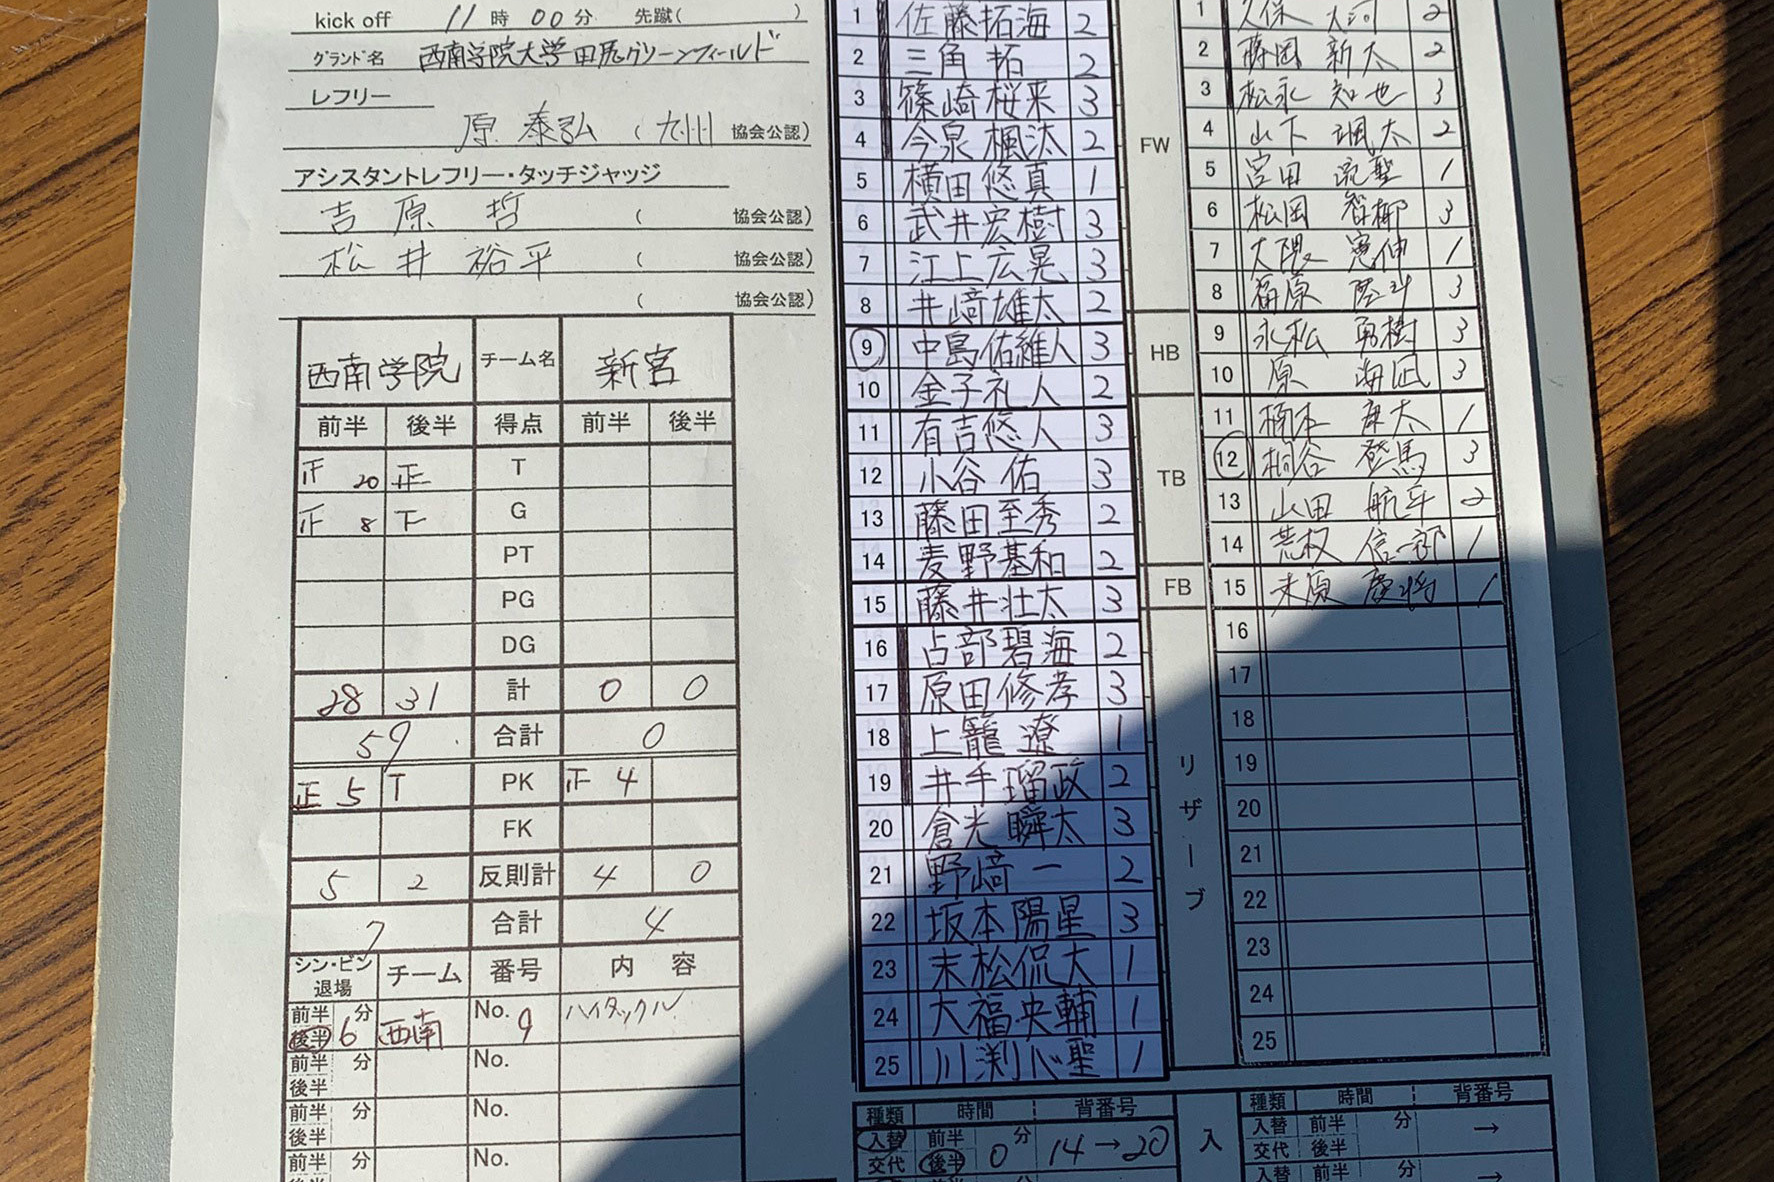 kick off 11時00分 先蹴( )
グランド名 西南学院大学田尻グリーンフィールド
レフリー
原 泰弘 (九州 協会公認)
アシスタントレフリー・タッチジャッジ
吉原 哲 ( 協会公認)
松井 裕平 ( 協会公認)
( 協会公認)
西南学院 チーム名 新宮
前半 後半 得点 前半 後半
正 20 正 T
正 8 下 G
PT
PG
DG
28 31 計 0 0
59 合計 0
正 5 T PK 正 4
FK
5 2 反則計 4 0
7 合計 4
シン・ビン 退場 チーム 番号 内容
前半 後半 6分 西南 No. 9 ハイタックル
前半 後半 分 No.
前半 後半 分 No.
前半 分 No.
1 佐藤拓海 2
2 三角拓 2
3 篠崎桜来 3
4 今泉楓汰 2
5 横田悠真 1
6 武井宏樹 3
7 江上広晃 3
8 井﨑雄太 2
9 中島佑維人 3
10 金子礼人 2
11 有吉悠人 3
12 小谷佑 3
13 藤田至秀 2
14 麦野基和 2
15 藤井壮太 3
16 占部碧海 2
17 原田修孝 3
18 上籠遼 1
19 井手瑠政 2
20 倉光瞬太 3
21 野﨑一 2
22 坂本陽星 3
23 末松侃大 1
24 大福央輔 1
25 川渕心聖 1
種類 時間 背番号
入替 交代 前半 後半 0分 14→20
入
FW
HB
TB
FB
リザーブ
1 久保 大河 2
2 藤岡 新太 2
3 松永 知也 3
4 山下 颯太 2
5 宮田 琉聖 1
6 松岡 智柳 3
7 大隈 憲伸 1
8 福原 陸斗 3
9 永松 勇樹 3
10 原 海凪 3
11 楠本 康太 1
12 桐谷 登馬 3
13 山田 航平 2
14 荒牧 信一郎 1
15 末原 慶将 1
16
17
18
19
20
21
22
23
24
25
種類 時間 背番号
入替 交代 前半 後半 分 →
入替 前半 分 →